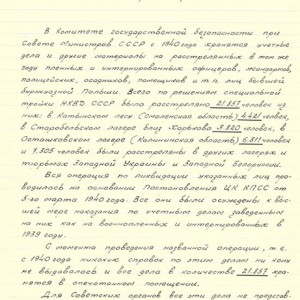 В Комитете государственной безопасности при
Совете Министров СССР с 1940 года хранятся учетные
дела и другие материалы на расстрелянных в том же
году пленных и интернированных офицеров, жандармов,
полицейских, осадников, помещиков и т.п. лиц бывшей
буржуазной Польши. Всего по решениям специальной
тройки НКВД СССР было расстреляно 21.857 человек, из
них: в Катынском лесу (Смоленская область) 4.421 человек,
в Старобельском лагере близ Харькова 3.820 человек, в
Осташковском лагере (Калининская область) 6.311 человек
и 7.305 человек были расстреляны в других лагерях и
тюрьмах Западной Украины и Западной Белоруссии.
Вся операция по ликвидации указанных лиц про-
водилась на основании Постановления ЦК КПСС от
5-го марта 1940 года. Все они были осуждены к выс-
шей мере наказания по учетным делам, заведенным
на них как на военнопленных и интернированных в
1939 году.
С момента проведения названной операции, т.е.
с 1940 года никаких справок по этим делам никому
не выдавалось и все дела в количестве 21.857 хра-
нятся в опечатанном помещении.
Для Советских органов все эти дела не представ-